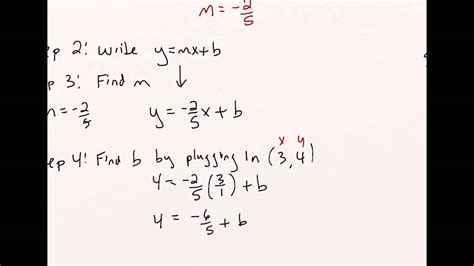 m = -2/5
ep 2: Write y=mx+b
ep 3: Find m ↓
m = -2/5 y = -2/5 x + b
x y
ep 4: Find b by plugging in (3,4)
4 = -2/5 (3/1) + b
4 = -6/5 + b